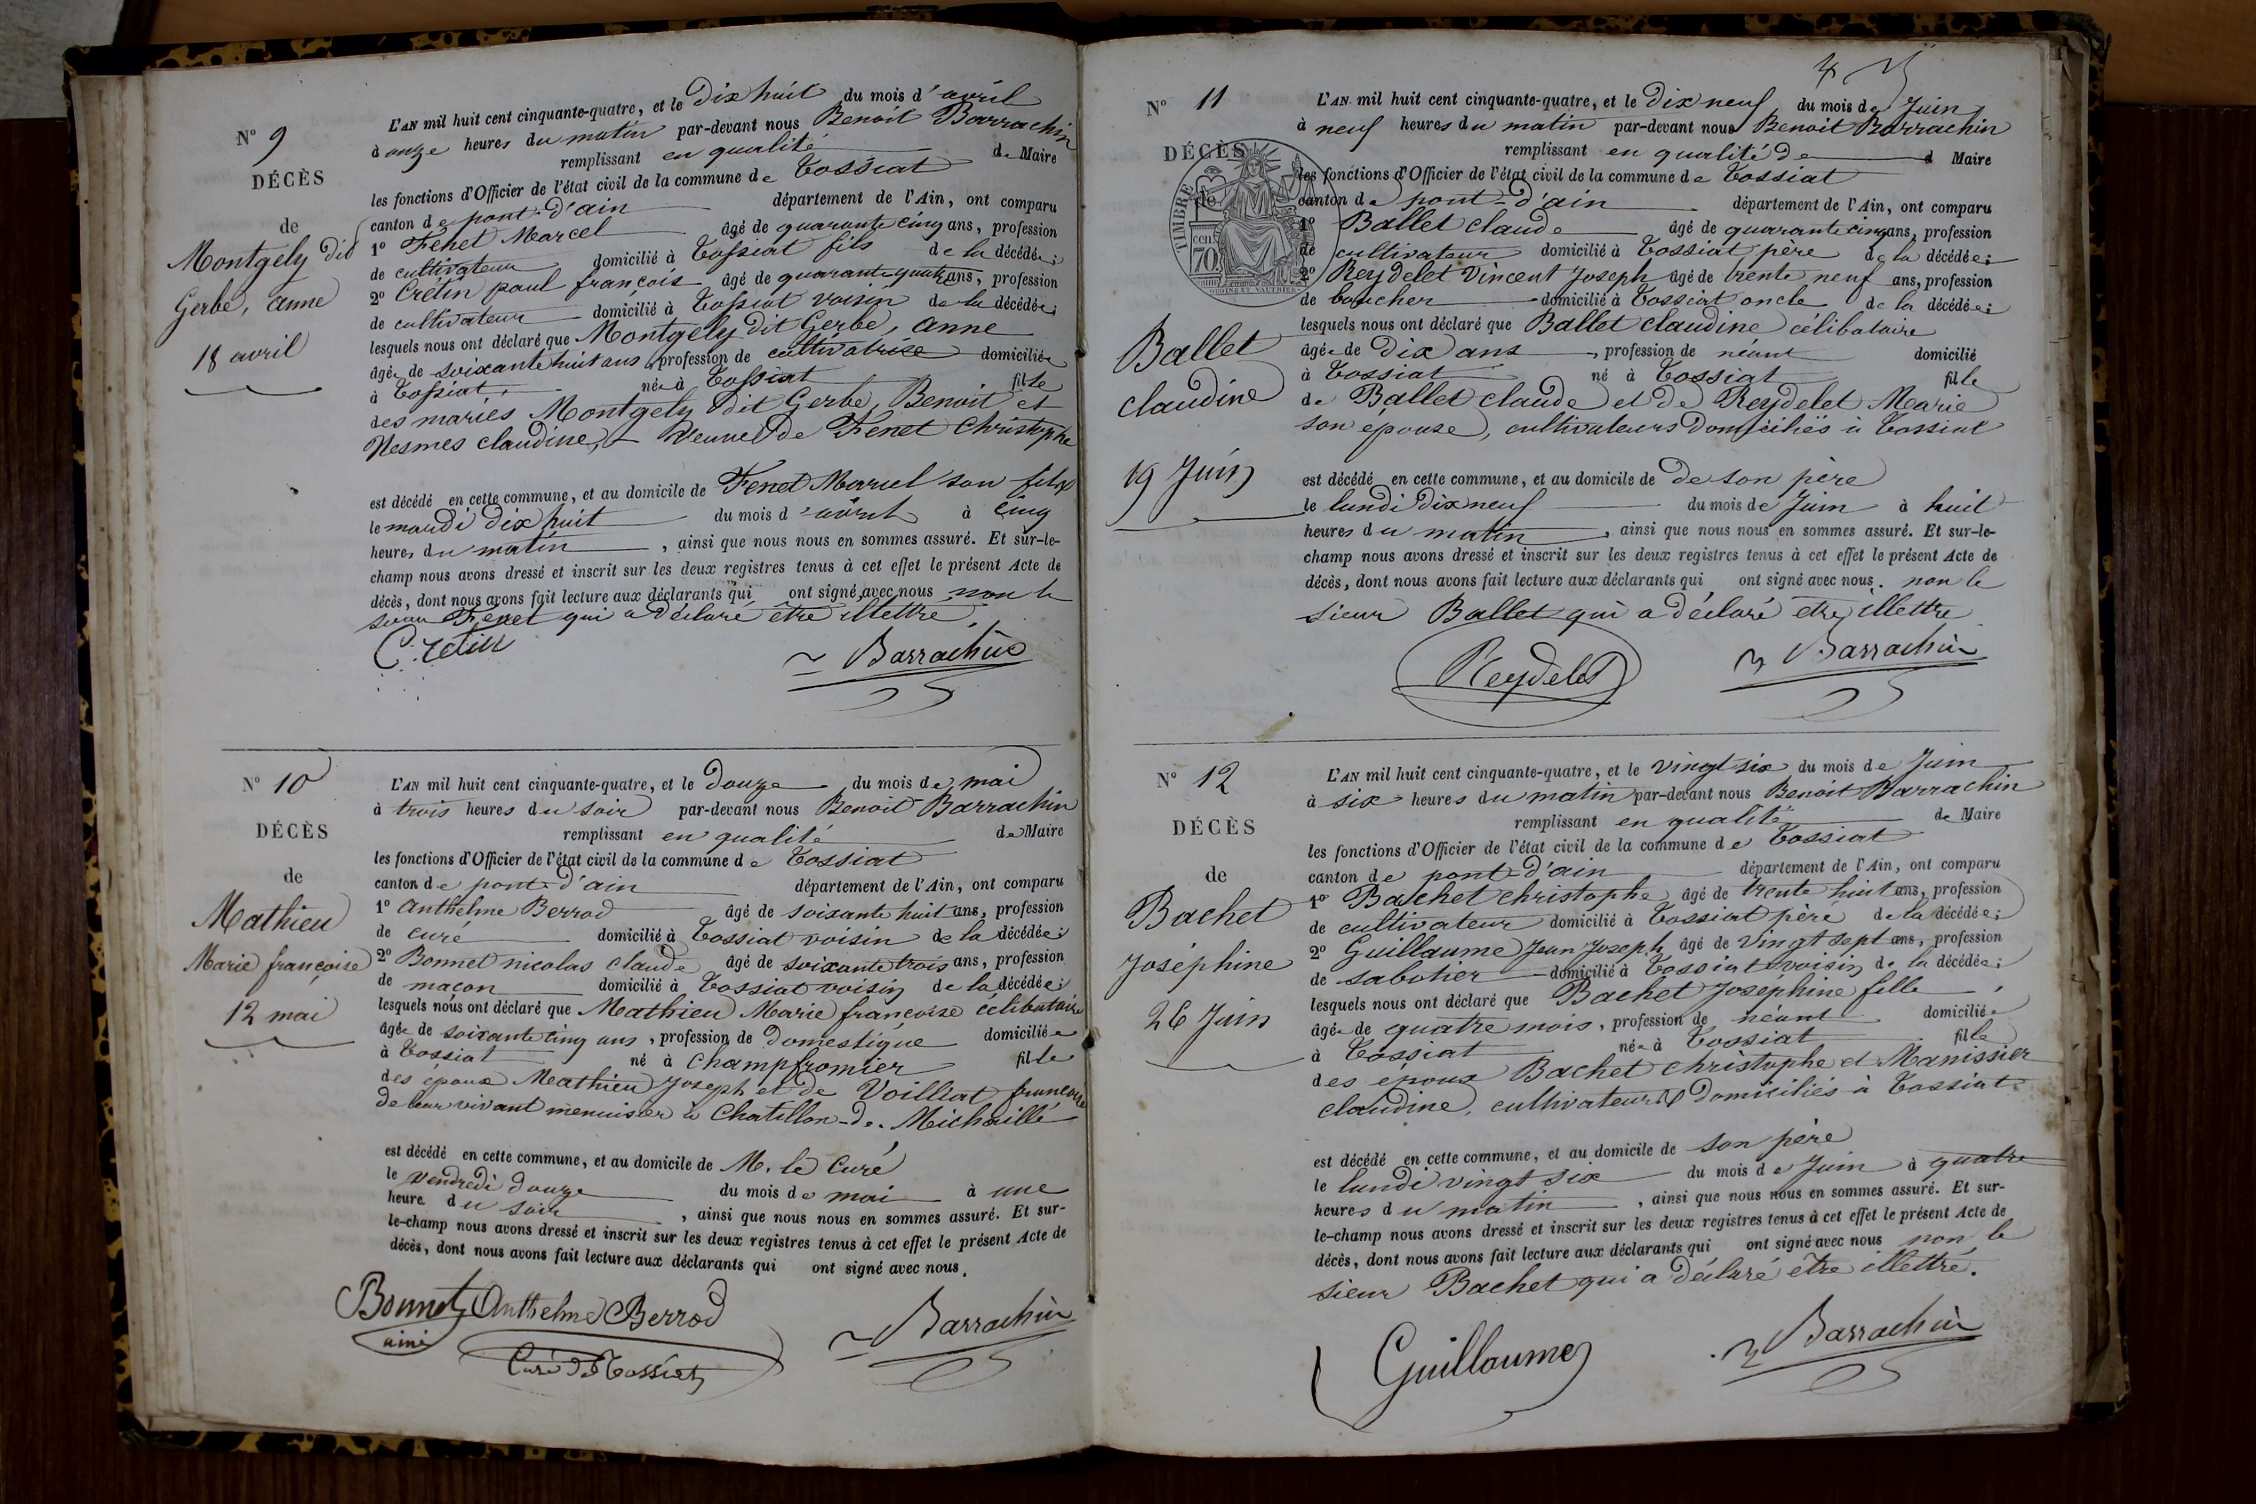 N° 9
DÉCÈS
de
Montgely dit
Gerbe, anne
18 avril
L'AN mil huit cent cinquante-quatre, et le Dix huit du mois d'avril
à onze heures du matin par-devant nous Benoit Barrachin
remplissant en qualité de Maire
les fonctions d'Officier de l'état civil de la commune de Tossiat
canton de pont-d'ain département de l'Ain, ont comparu
1° Fenet Marcel âgé de quarante cinq ans, profession
de cultivateur domicilié à Tossiat fils de la décédée;
2° Crétin paul françois âgé de quarante quatre ans, profession
de cultivateur domicilié à Tossiat voisin de la décédée;
lesquels nous ont déclaré que Montgely dit Gerbe, anne
âgée de soixante huit ans, profession de cultivatrice domiciliée
à Tossiat, née à Tossiat fille
des mariés Montgely dit Gerbe, Benoit et
Nesmes claudine, Veuve de Fenet Christophe
est décédé en cette commune, et au domicile de Fenet Marcel son fils
le mardi dix huit du mois d'avril à cinq
heures du matin, ainsi que nous nous en sommes assuré. Et sur-le-
champ nous avons dressé et inscrit sur les deux registres tenus à cet effet le présent Acte de
décès, dont nous avons fait lecture aux déclarants qui ont signé avec nous non le
sieur Fenet qui a déclaré être illettré.
Cretin
Barrachin
N° 10
DÉCÈS
de
Mathieu
Marie françoise
12 mai
L'AN mil huit cent cinquante-quatre, et le Douze du mois de mai
à trois heures du soir par-devant nous Benoit Barrachin
remplissant en qualité de Maire
les fonctions d'Officier de l'état civil de la commune de Tossiat
canton de pont-d'ain département de l'Ain, ont comparu
1° Anthelme Berrod âgé de soixante huit ans, profession
de curé domicilié à Tossiat voisin de la décédée;
2° Bonnet nicolas claude âgé de soixante trois ans, profession
de maçon domicilié à Tossiat voisin de la décédée;
lesquels nous ont déclaré que Mathieu Marie françoise célibataire
âgée de soixante cinq ans, profession de Domestique domiciliée
à Tossiat né à Champfromier fille
des époux Mathieu Joseph et de Voilliat françoise
de leur vivant menuisier à Chatillon-de-Michaille
est décédé en cette commune, et au domicile de M. le Curé
le vendredi douze du mois de mai à une
heure du soir, ainsi que nous nous en sommes assuré. Et sur-
le-champ nous avons dressé et inscrit sur les deux registres tenus à cet effet le présent Acte de
décès, dont nous avons fait lecture aux déclarants qui ont signé avec nous.
Bonnet Anthelme Berrod
ainé
Curé de Tossiat
Barrachin
N° 11
DÉCÈS
de
TIMBRE
70 cen
Ballet
claudine
19 Juin
L'AN mil huit cent cinquante-quatre, et le Dix neuf du mois de Juin
à neuf heures du matin par-devant nous Benoit Barrachin
remplissant en qualité de d Maire
les fonctions d'Officier de l'état civil de la commune de Tossiat
canton de pont-d'ain département de l'Ain, ont comparu
1° Ballet claude âgé de quarante cinq ans, profession
de cultivateur domicilié à Tossiat père de la décédée;
2° Reydelet Vincent Joseph âgé de trente neuf ans, profession
de boucher domicilié à Tossiat oncle de la décédée;
lesquels nous ont déclaré que Ballet claudine célibataire
âgée de Dix ans, profession de néant domicilié
à Tossiat né à Tossiat fille
de Ballet claude et de Reydelet Marie
son épouse, cultivateurs domiciliés à Tossiat
est décédé en cette commune, et au domicile de de son père
le lundi dix neuf du mois de Juin à huit
heures du matin, ainsi que nous nous en sommes assuré. Et sur-le-
champ nous avons dressé et inscrit sur les deux registres tenus à cet effet le présent Acte de
décès, dont nous avons fait lecture aux déclarants qui ont signé avec nous. non le
sieur Ballet qui a déclaré être illettré
Reydelet
Barrachin
N° 12
DÉCÈS
de
Bachet
Joséphine
26 Juin
L'AN mil huit cent cinquante-quatre, et le vingt six du mois de Juin
à six heures du matin par-devant nous Benoit Barrachin
remplissant en qualité de Maire
les fonctions d'Officier de l'état civil de la commune de Tossiat
canton de pont-d'ain département de l'Ain, ont comparu
1° Bachet christophe âgé de trente huit ans, profession
de cultivateur domicilié à Tossiat père de la décédée;
2° Guillaume Jean Joseph âgé de vingt sept ans, profession
de sabotier domicilié à Tossiat voisin de la décédée;
lesquels nous ont déclaré que Bachet Joséphine fille,
âgée de quatre mois, profession de néant domiciliée
à Tossiat née à Tossiat fille
des époux Bachet christophe et Manissier
claudine, cultivateurs domiciliés à Tossiat
est décédé en cette commune, et au domicile de son père
le lundi vingt six du mois de Juin à quatre
heures du matin, ainsi que nous nous en sommes assuré. Et sur-
le-champ nous avons dressé et inscrit sur les deux registres tenus à cet effet le présent Acte de
décès, dont nous avons fait lecture aux déclarants qui ont signé avec nous non le
sieur Bachet qui a déclaré être illettré.
Guillaume
Barrachin